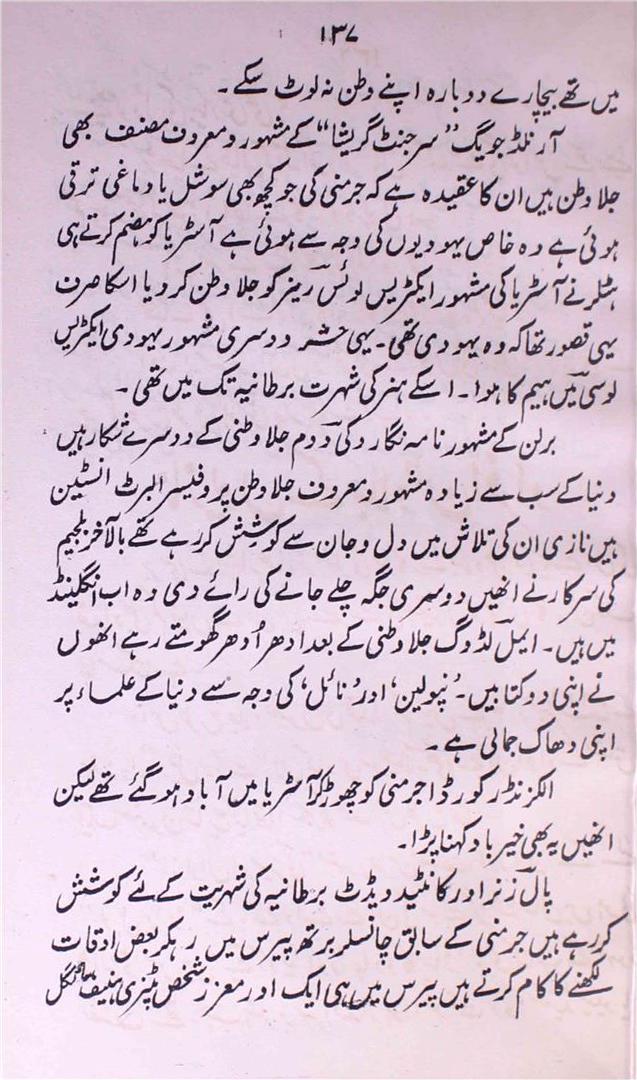 ۱۳۷
میں تھے بیچارے دوبارہ اپنے وطن نہ لوٹ سکے۔
آرنلڈ جویگ "سرجنٹ گریشا" کے مشہور و معروف مصنف بھی
جلا وطن ہیں ان کا عقیدہ ہے کہ جرمنی کی جو کچھ بھی سوشل یا دماغی ترقی
ہوئی ہے وہ خاص یہودیوں کی وجہ سے ہوئی ہے آسٹریا کو ہضم کرتے ہی
ہٹلر نے آسٹریا کی مشہور ایکٹریس لوئس رینر کو جلا وطن کر دیا اسکا صرف
یہی قصور تھا کہ وہ یہودی تھی۔ یہی حشر دوسری مشہور یہودی ایکٹریس
لوسی مین ہیم کا ہوا۔ اسکے ہنر کی شہرت برطانیہ تک میں تھی۔
برلن کے مشہور نامہ نگار وکی دوم جلا وطنی کے دوسرے شکار ہیں
دنیا کے سب سے زیادہ مشہور و معروف جلا وطن پروفیسر البرٹ انسٹین
ہیں نازی ان کی تلاش میں دل و جان سے کوشش کر رہے تھے بالآخر بلجیم
کی سرکار نے انھیں دوسری جگہ چلے جانے کی رائے دی وہ اب انگلینڈ
میں ہیں۔ ایمل لڈوگ جلا وطنی کے بعد ادھر اُدھر گھومتے رہے انھوں
نے اپنی دو کتابیں۔ 'نپولین' اور 'نائل' کی وجہ سے دنیا کے علماء پر
اپنی دھاک جمالی ہے۔
الکزنڈر کورڈا جرمنی کو چھوڑ کر آسٹریا میں آباد ہو گئے تھے لیکن
انھیں یہ بھی خیر باد کہنا پڑا۔
پال زنر اور کانٹیڈ ویڈٹ برطانیہ کی شہریت کے لئے کوشش
کر رہے ہیں جرمنی کے سابق چانسلر برتھ پیرس میں رہکر بعض اوقات
لکھنے کا کام کرتے ہیں پیرس میں ہی ایک اور معزز شخص